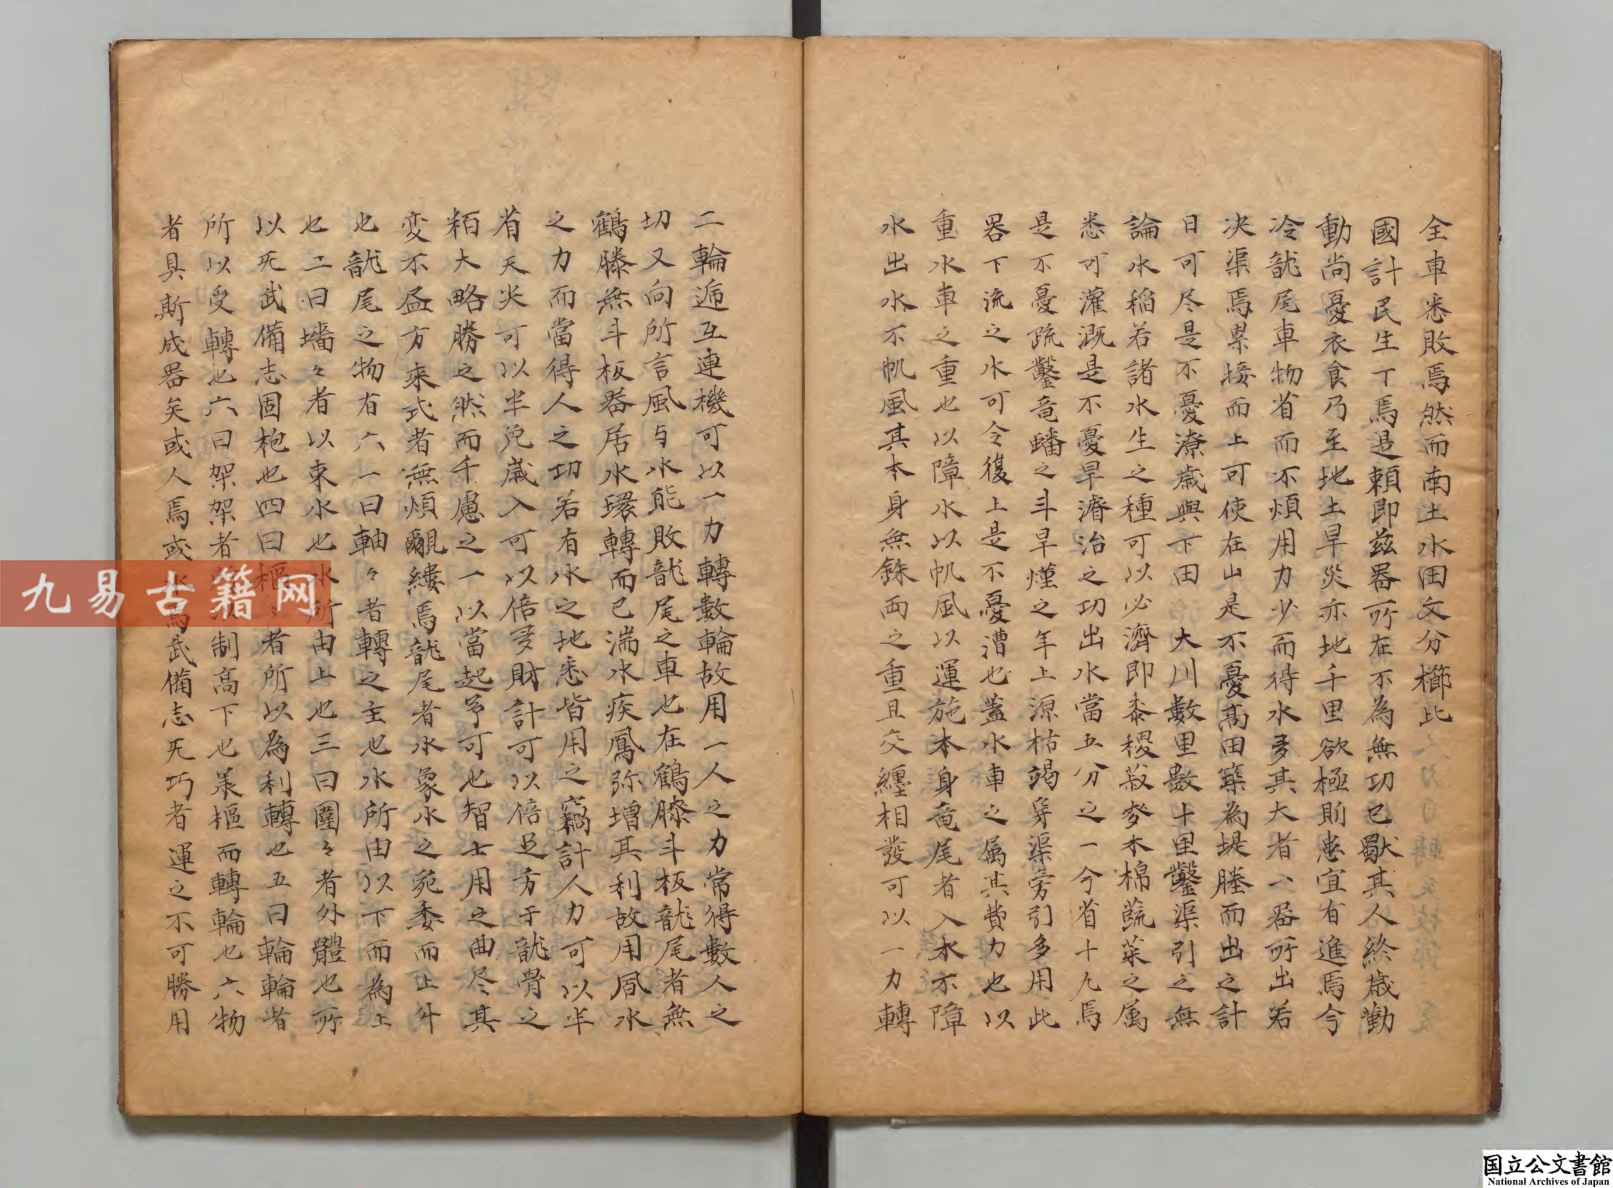 全車悉敗焉然而南土水田文分櫛比
國計民生丁焉退賴即茲器所在不為無功已歇其人終歳勤
動尚憂衣食乃至地土旱災亦地千里欲極則患宜有進焉今
冷龍尾車物省而不煩用力少而得水多其大者一器所出若
决渠焉累接而上可使在山是不憂高田築為堤塍而出之計
日可尽是不憂潦歳與下田 大川數里數十里鑿渠引之無
論水稲若諸水生之種可以必濟即黍稷菽麥木棉蔬菜之属
悉可灌溉是不憂旱濬治之功出水當五分之一今省十九焉
是不憂疏鑿竜蟠之斗旱熯之年上源枯竭穿渠旁引多用此
器下流之水可令復上是不憂漕也蓋水車之属其費力也以
重水車之重也以障水以帆風以運施本身竜尾者入水不障
水出水不帆風其本身無銖両之重且交纏相發可以一力轉
二輪逓互連機可以一力轉數輪故用一人之力常得數人之
切又向所言風与水能敗龍尾之車也在鶴膝斗板龍尾者無
鶴膝無斗板器居水環轉而已湍水疾風弥增其利故用風水
之力而當得人之功若有水之地悉皆用之竊計人力可以半
省天災可以半免歳入可以倍多財計可以倍足方于龍骨之
粨大略勝之然而千慮之一以當起予可也智士用之曲尽其
変不盃方來式者無煩覼縷焉龍尾者水象水之菀委而上升
也龍尾之物有六一曰軸々者轉之主也水所由以下而為上
也二曰墻々者以束水也水所由上也三曰圍々者外體也所
以死武備志固枹也四曰樞々者所以為利轉也五曰輪輪者
所以受轉也六曰架架者 制高下也㫖樞而轉輪也六物
者具斯成器矣或人焉或水焉武備志死巧者運之不可勝用
九易古籍网
国立公文書館
National Archives of Japan